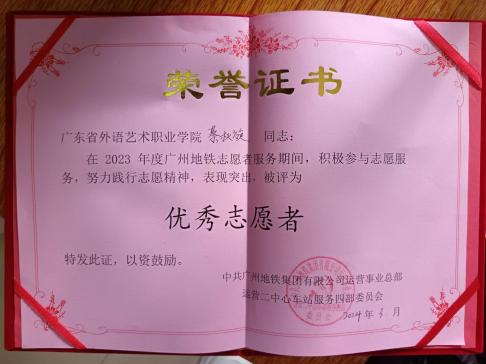 荣誉证书
广东省外语艺术职业学院 同志：
在 2023 年度广州地铁志愿者服务期间，积极参与志愿服
务，努力践行志愿精神，表现突出，被评为
优秀志愿者
特发此证，以资鼓励。
中共广州地铁集团有限公司运营事业总部
运营二中心车站服务四部委员会
2024年3月